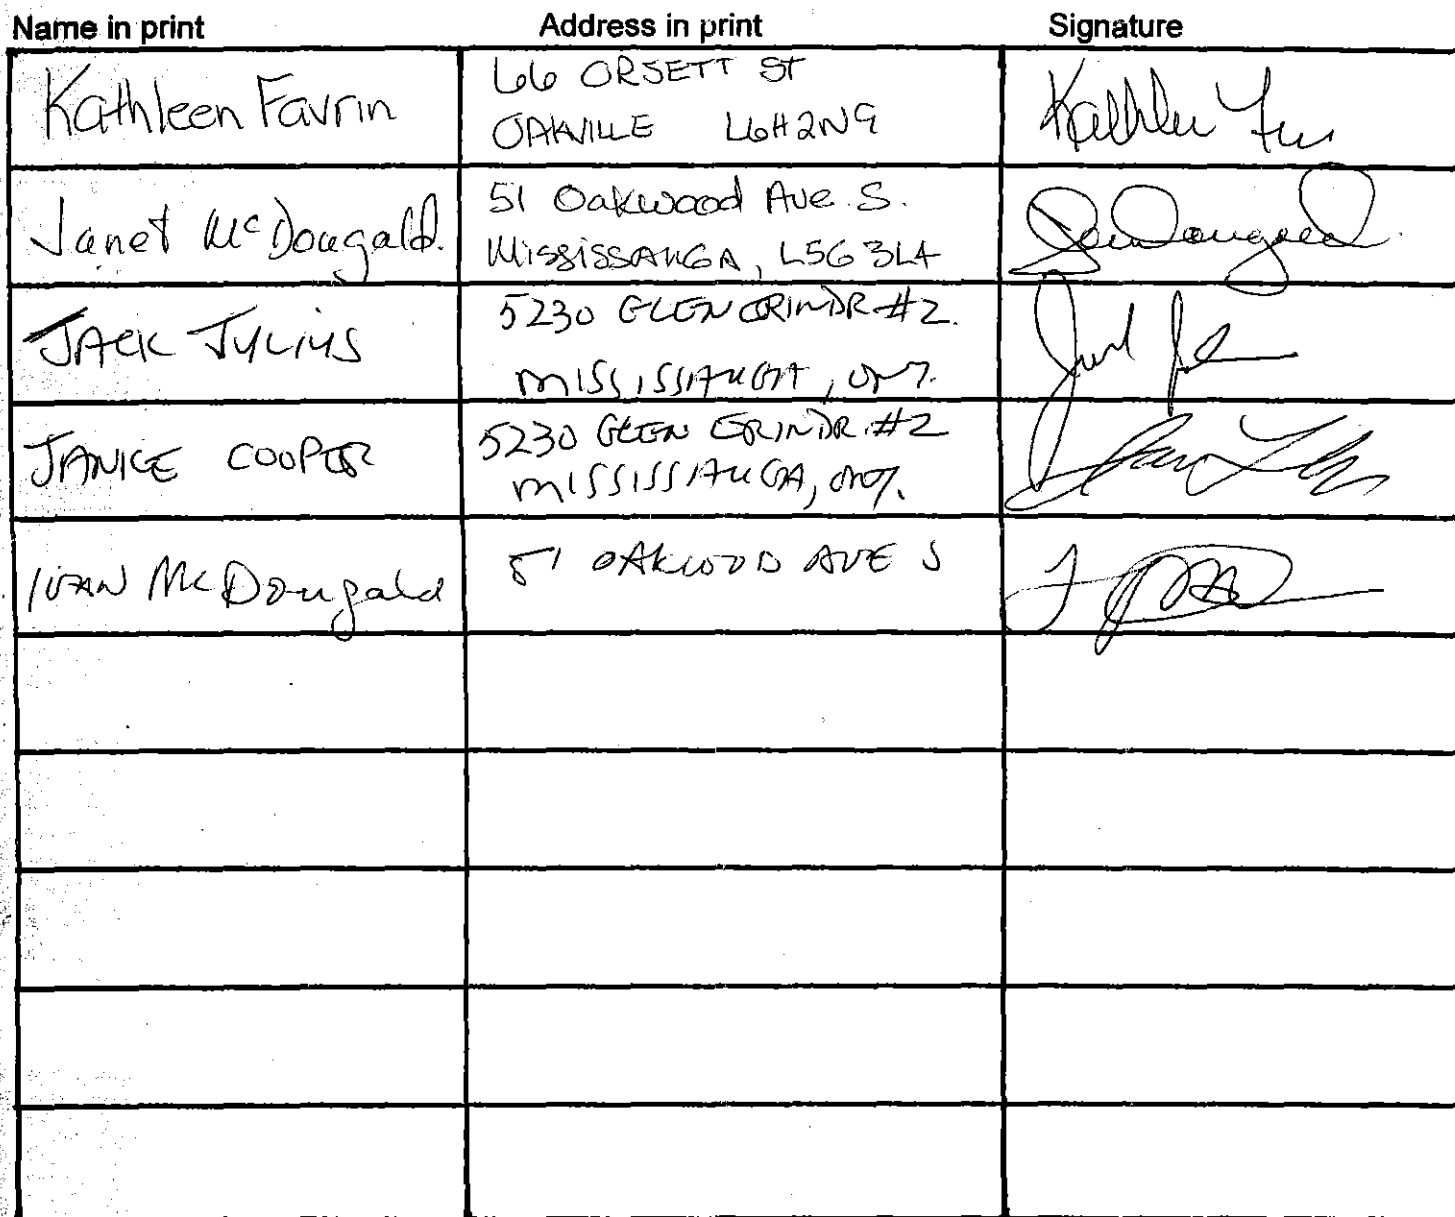 Name in print Address in print Signature
Kathleen Favrin
66 ORSETT ST
OAKVILLE L6H2N9
Janet McDougald.
51 Oakwood Ave. S.
MISSISSAUGA, L5G 3L4
JACK JULIUS
5230 GLEN ERIN DR #2.
MISSISSAUGA, ONT.
JANICE COOPER
5230 GLEN ERIN DR. #2
MISSISSAUGA, ONT.
IVAN McDougald
51 OAKWOOD AVE S